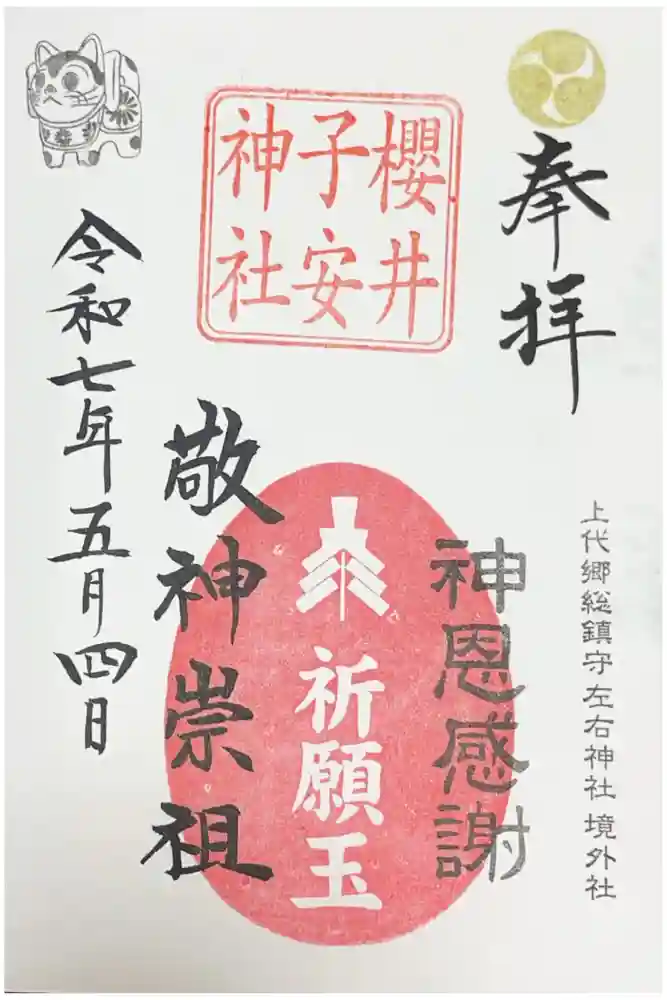 奉拝
上代郷総鎮守左右神社 境外社
櫻井
子安
神社
神恩感謝
祈願玉
敬神崇祖
令和七年五月四日